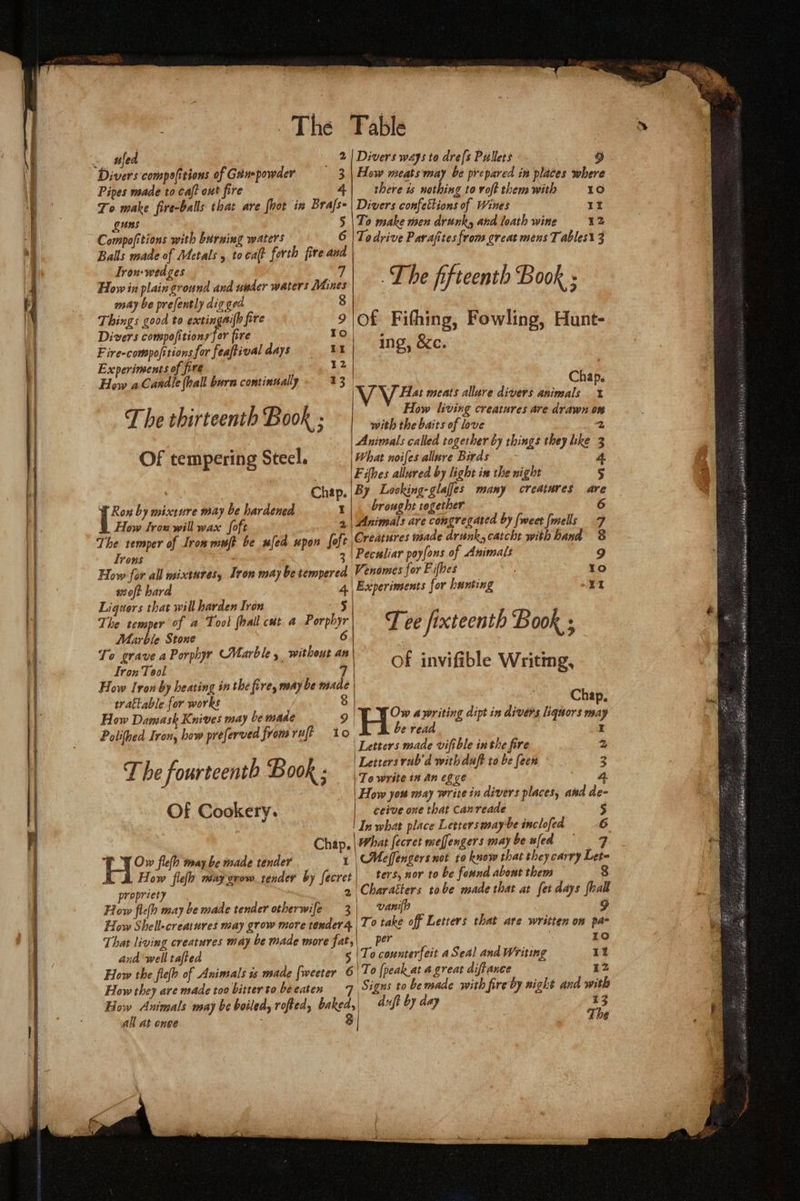 The Table
uſed 2
Divers compoſitions of Gunpowder 3
Pipes made to caſt out fire 4
To make fire-balls that are ſhot in Braſs-
guns 5
Compoſitions with burning waters 6
Balls made of Metals, to caſt forth fire and
Iron-wedges 7
How in plain ground and under waters Mines
may be preſently digged 8
Things good to extinguiſh fire 9
Divers compoſitions for fire 10
Fire-compoſitions for feaſtival days 11
Experiments of fire 12
How a Candle ſhall burn continually 13
The thirteenth Book;
Of tempering Steel.
Chap.
IRon by mixture may be hardened 1
How Iron will wax ſoft 2
The temper of Iron muſt be uſed upon ſoft
Irons 3
How for all mixtures, Iron may be tempered
moſt hard 4
Liquors that will harden Iron 5
The temper of a Tool ſhall cut a Porphyr
Marble Stone 6
To grave a Porphyr Marble, without an
Iron Tool 7
How Iron by heating in the fire, may be made
tractable for works 8
How Damask Knives may be made 9
Poliſhed Iron, how preſerved from ruſt 10
The fourteenth Book;
Of Cookery.
Chap.
HOw fleſh may be made tender 1
How fleſh may grow tender by ſecret
propriety 2
How fleſh may be made tender otherwiſe 3
How Shell-creatures may grow more tender 4
That living creatures may be made more fat,
and well taſted 5
How the fleſh of Animals is made ſweeter 6
How they are made too bitter to be eaten 7
How Animals may be boiled, roſted, baked,
all at once 8
Divers ways to dreſs Pullets 9
How meats may be prepared in places where
there is nothing to roſt them with 10
Divers confections of Wines 11
To make men drunk, and loath wine 12
To drive Paraſites from great mens Tables 13
The fifteenth Book;
Of Fiſhing, Fowling, Hunt-
ing, &c.
Chap.
WHat meats allure divers animals 1
How living creatures are drawn on
with the baits of love 2
Animals called together by things they like 3
What noiſes allure Birds 4
Fiſhes allured by light in the night 5
By Looking-glaſſes many creatures are
brought together 6
Animals are congregated by ſweet ſmells 7
Creatures made drunk, catcht with hand 8
Peculiar poyſons of Animals 9
Venomes for Fiſhes 10
Experiments for hunting 11
Tee ſixteenth Book;
Of inviſible Writing,
Chap.
HOw a writing dipt in divers liquors may
be read 1
Letters made viſible in the fire 2
Letters rub'd with duſt to be ſeen 3
To write in an egge 4
How you may write in divers places, and de-
ceive one that can reade 5
In what place Letters may be incloſed 6
What ſecret meſſengers may be uſed 7
Meſſengers not to know that they carry Let-
ters, nor to be found about them 8
Characters to be made that at ſet days ſhall
vaniſh 9
To take off Letters that are written on pa-
per 10
To counterfeit a Seal and Writing 11
To ſpeak at a great diſtance 12
Signs to be made with fire by night and with
duſt by day 13
The